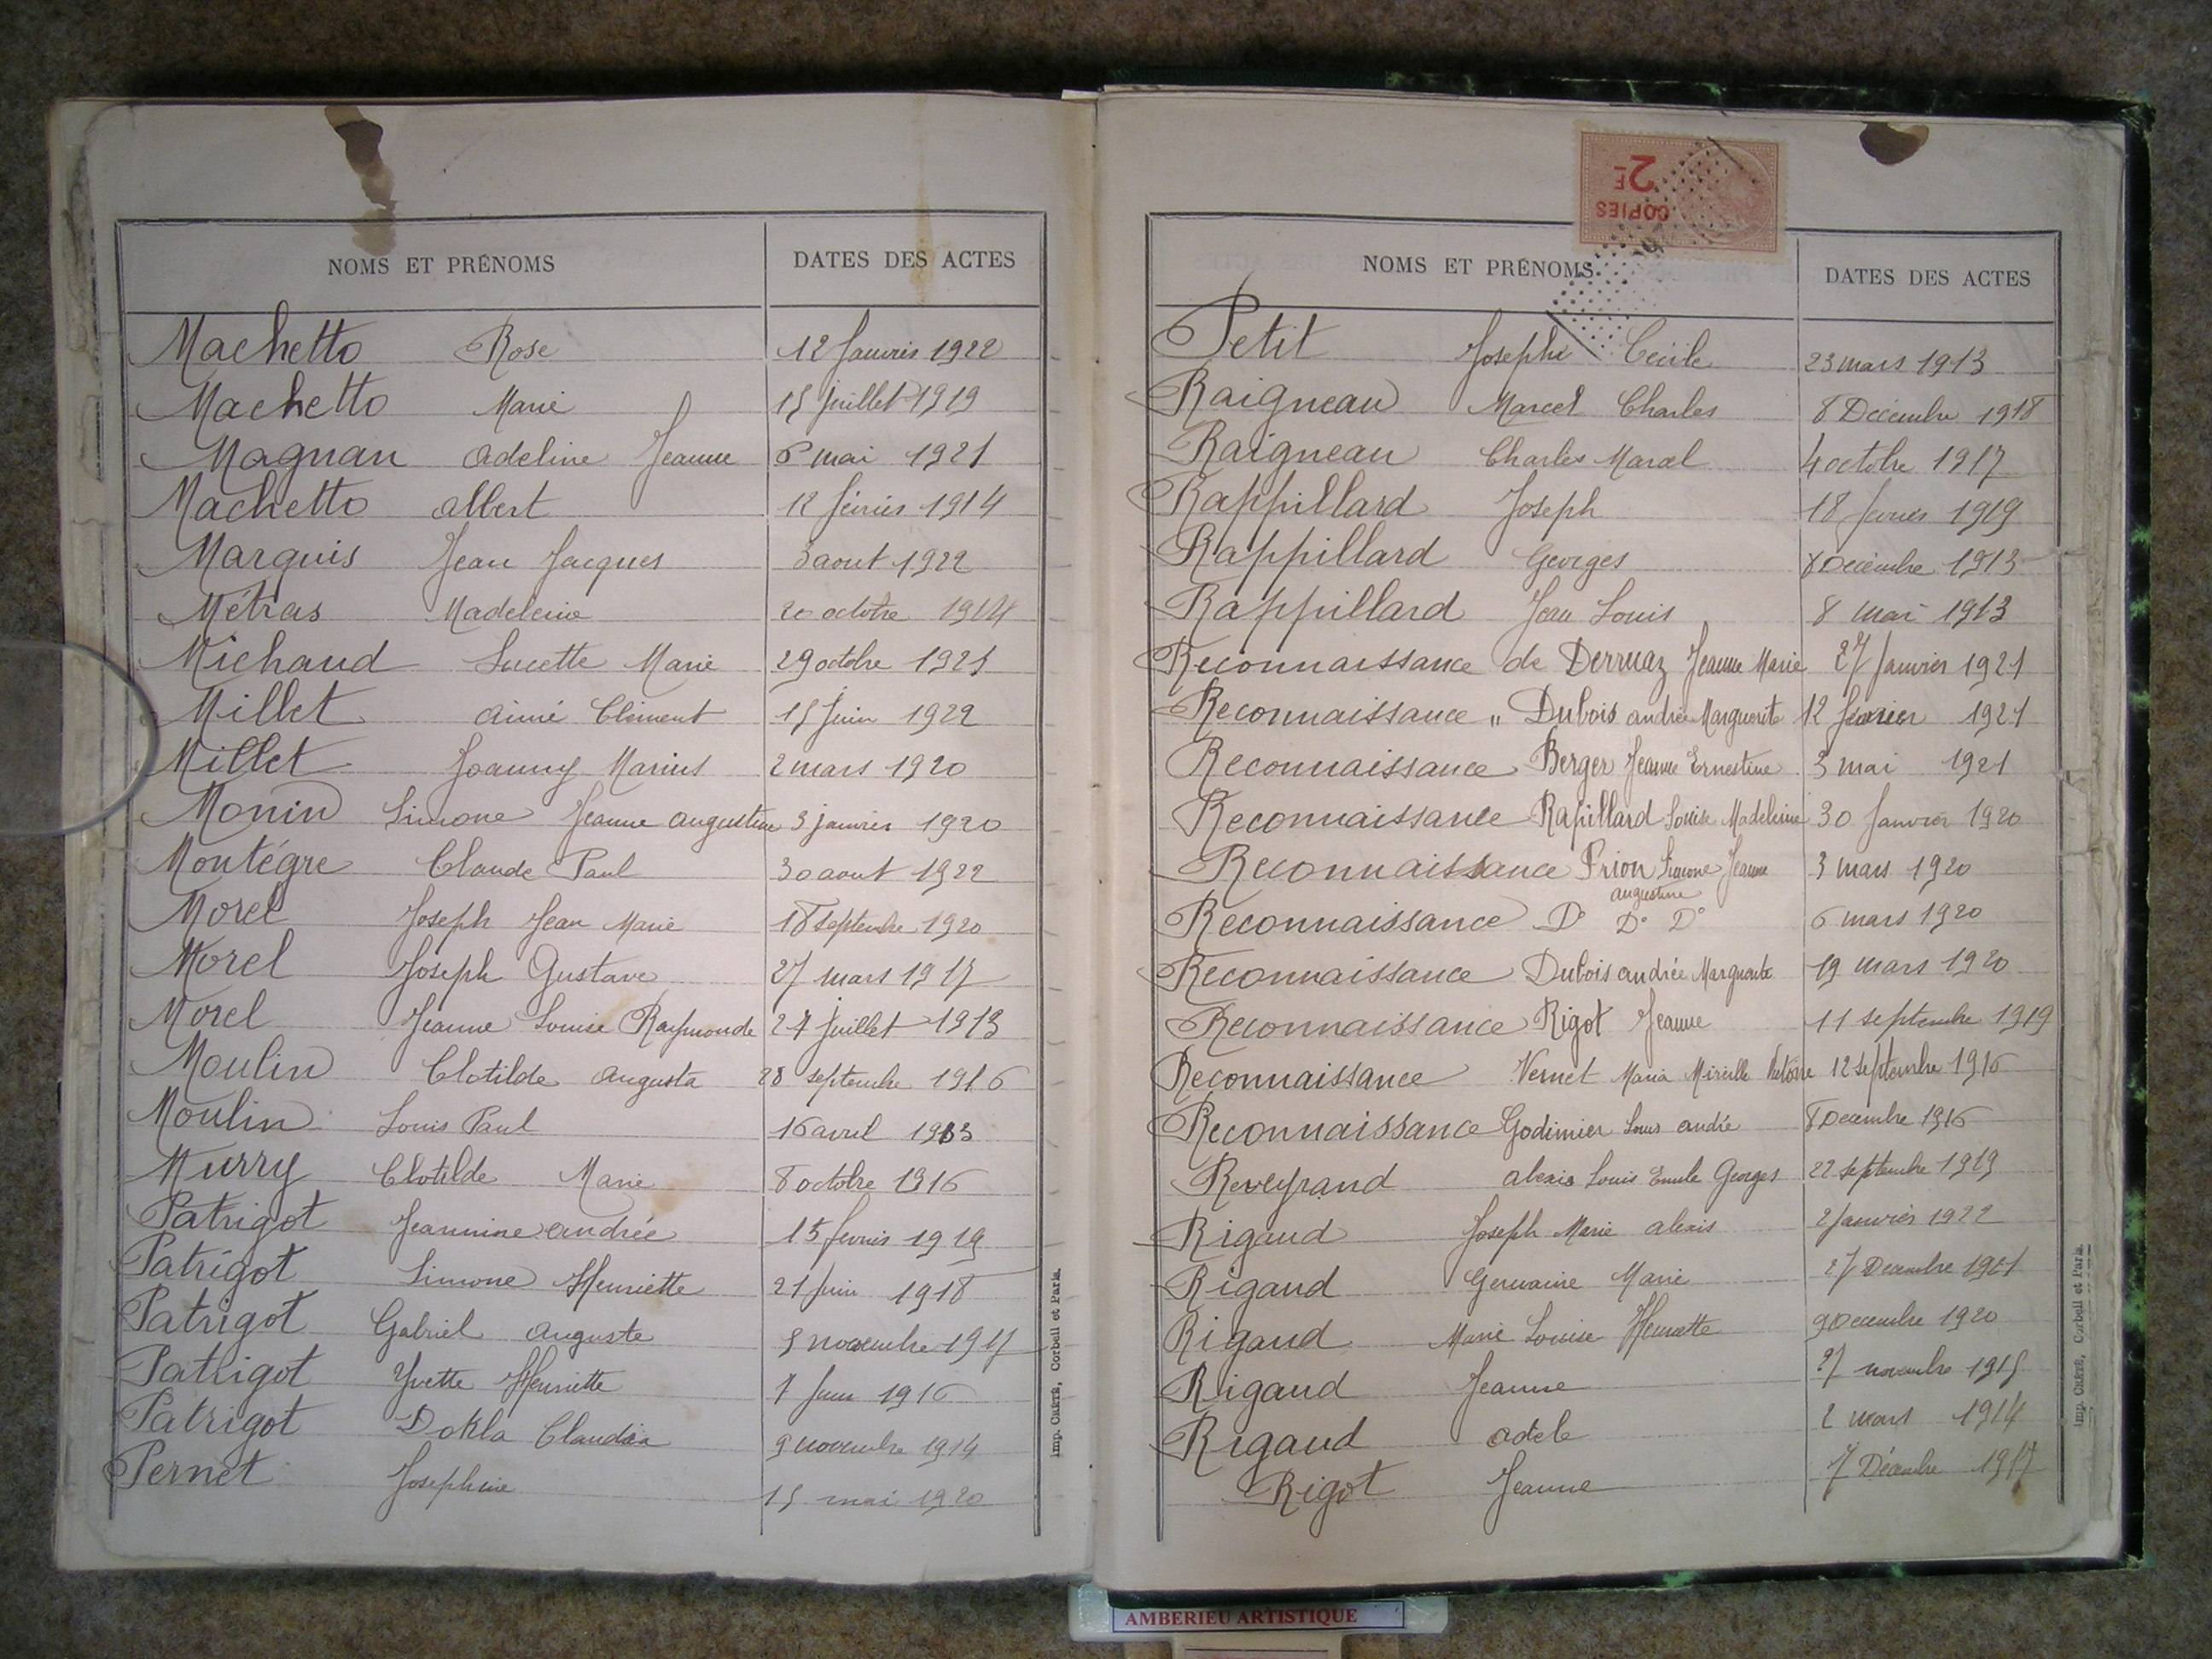 NOMS ET PRÉNOMS DATES DES ACTES
Machetto Rose 12 Janvier 1922
Machetto Marie 15 juillet 1919
Magnan Adeline Jeanne 6 mai 1921
Machetto Albert 12 février 1914
Marquis Jean Jacques 3 aout 1922
Métras Madeleine 20 octobre 1914
Michaud Lucette Marie 29 octobre 1921
Millet Aimé Clément 15 Juin 1922
Millet Joanny Marius 2 mars 1920
Monin Simone Jeanne Augustine 3 janvier 1920
Montégre Claude Paul 30 aout 1922
Morel Joseph Jean Marie 18 septembre 1920
Morel Joseph Gustave 27 mars 1917
Morel Jeanne Louise Raymonde 27 Juillet 1913
Moulin Clotilde Augusta 28 septembre 1916
Moulin Louis Paul 16 avril 1913
Murry Clotilde Marie 8 octobre 1916
Patrigot Jeannine Andrée 15 février 1919
Patrigot Simone Henriette 21 Juin 1918
Patrigot Gabriel Auguste 5 novembre 1917
Patrigot Yvette Henriette 7 Juin 1916
Patrigot Claudia 9 novembre 1914
Pernet Josephine 15 mai 1920
Imp. CRÉTÉ, Corbeil et Paris.
2F
COPIES
NOMS ET PRÉNOMS DATES DES ACTES
Petit Cécile 23 mars 1913
Raigneau Marcel Charles 8 Décembre 1918
Raigneau Charles Marcel 4 octobre 1917
Rappillard Joseph 18 1919
Rappillard Georges Décembre 1913
Rappillard Jean Louis 8 mai 1913
Reconnaissance de Derruaz Jeanne Marie 27 Janvier 1921
Reconnaissance " Dubois Andrée Marguerite 12 février 1921
Reconnaissance Berger Jeanne Ernestine 3 mai 1921
Reconnaissance Rapillard Louise Madeleine 30 Janvier 1920
Reconnaissance Prion Simone Jeanne 3 mars 1920
Augustine
Reconnaissance D° D° D° 6 mars 1920
Reconnaissance Dubois Andrée Marguerite 19 mars 1920
Reconnaissance Rigot Jeanne 11 septembre 1919
Reconnaissance Vernet Maria Mireille Victoire 12 septembre 1916
Reconnaissance Godimier Louis André 8 Décembre 1916
Reveyrand Alexis Louis Emile Georges 22 septembre 1919
Rigaud Joseph Marie Alexis 2 Janvier 1922
Rigaud Germaine Marie 27 Décembre 1921
Rigaud Marie Louise Henriette 9 Décembre 1920
Rigaud Jeanne 27 novembre 1915
Rigaud Adele 2 mars 1914
Rigot Jeanne 7 Décembre 1917
Imp. CRÉTÉ, Corbeil et Paris.
AMBERIEU ARTISTIQUE